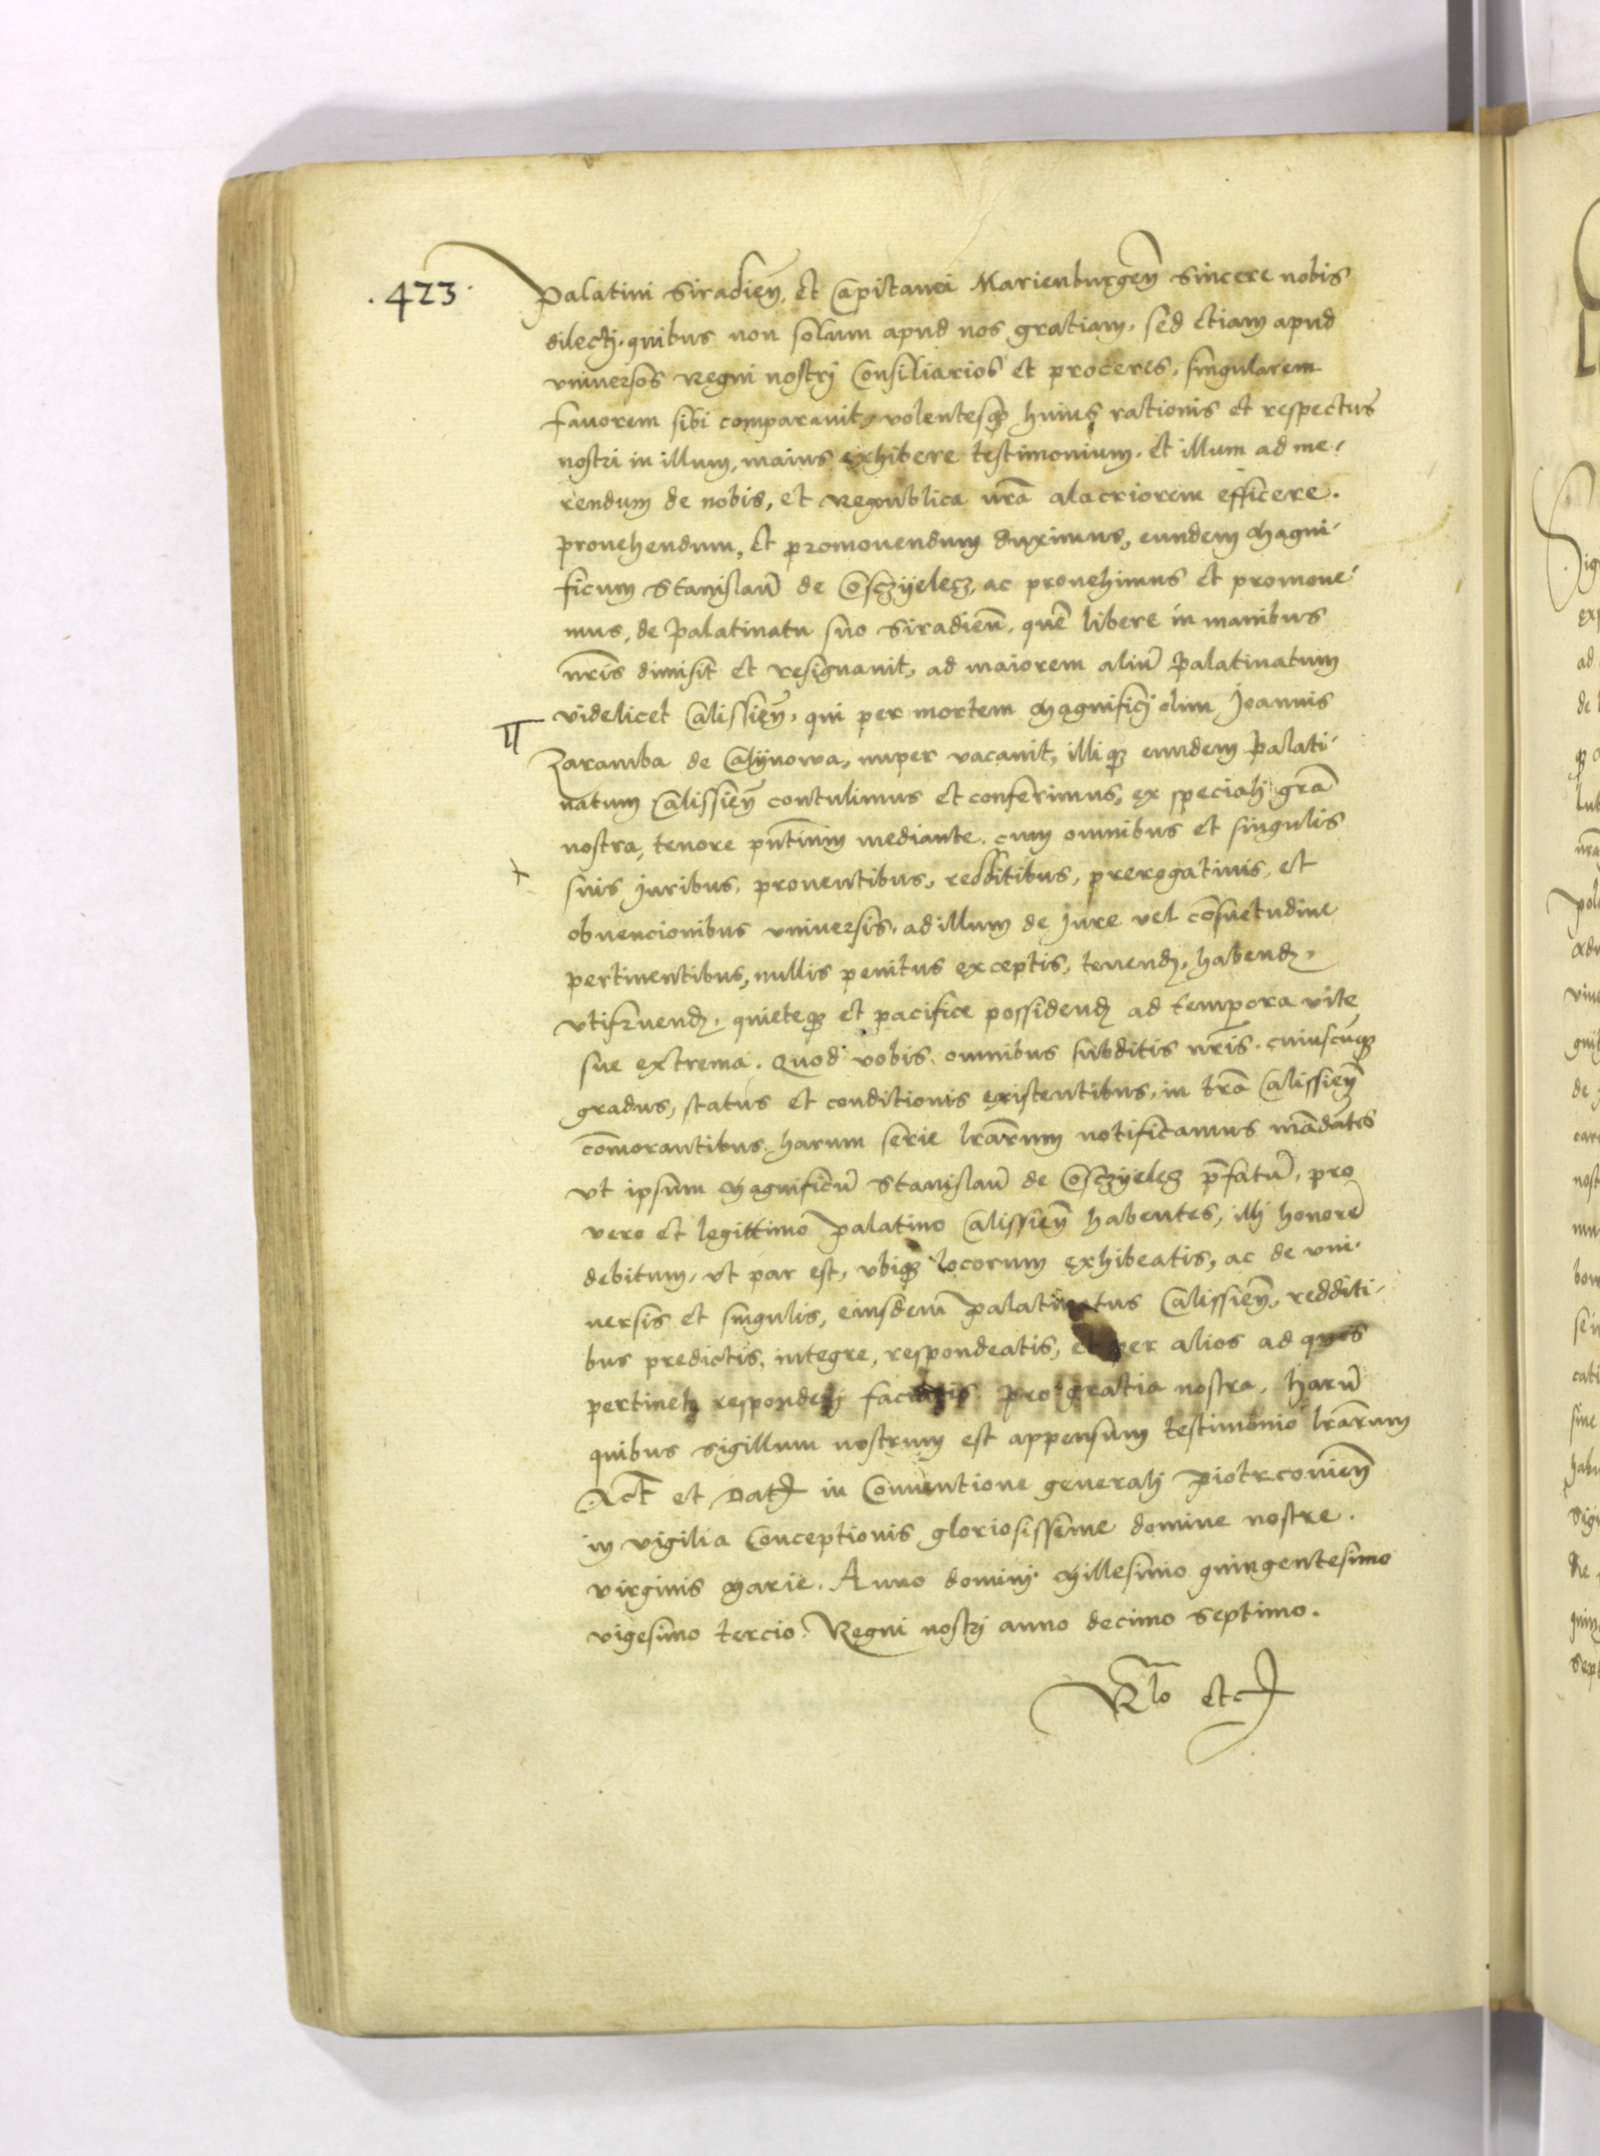 .423.
Palatini Siradieñ, et Capitanei Marienburgeñ sincere nobis
dilectj, quibus non solum apud nos gratiam, sed etiam apud
vniuersos Regni nostrj Consiliarios et proceres, singularem
fauorem sibi comparauit, volentesq₃ huius rationis et respectus
nostri in illum, maius exhibere testimonium, et illum ad me-
rendum de nobis, et Republica nrã alacriorem efficere.
prouehendum, et promouendum duximus, eundem Magni-
ficum Stanislaũ de Coszyelez, ac prouehimus et promoue-
mus, de Palatinatu suo Siradieñ, quẽ libere in manibus
nr̃is dimisit et resignauit, ad maiorem aliũ Palatinatum
videlicet Calissieñ, qui per mortem Magnificj olim Joannis
Zaramba de Calynowa, nuper vacauit, illiq₃ eundem Palati-
natum Calissieñ contulimus et conferimus, ex specialj grã
nostra, tenore pñtium mediante. cum omnibus et singulis
suis Juribus, prouentibus, redditibus, prerogatiuis, et
obuencionibus vniuersis, ad illum de Jure vel cõsuetudine
pertinentibus, nullis penitus exceptis, tenend₃, habend₃,
vtifruend₃, quieteq₃ et pacifice possidend₃ ad tempora vite
sue extrema. Quod vobis omnibus subditis nr̃is, cuiuscũq₃
gradus, status et conditionis existentibus, in trã Calissieñ
cõmorantibus, harum serie lrãrum notificamus mãdates
vt ipsum Magnificũ Stanislaũ de Coszyelez p̃fatũ, pro
vero et legittimo Palatino Calissieñ habentes, illj honorẽ
debitum, vt par est, vbiq₃ locorum exhibeatis, ac de vni-
uersis et singulis, eiusdem Palatinatus Calissieñ, redditi-
bus predictis, integre, respondeatis, et per alios ad quos
pertinet, responderj faciatis. Pro gratia nostra, Harũ
quibus sigillum nostrum est appensum testimonio lrãrum
Act et Dat in Conuentione generalj Piotrcouieñ
in vigilia Conceptionis gloriosissime domine nostre.
virginis Marie. Anno dominj Millesimo quingentesimo
vigesimo tercio. Regni nostrj anno decimo septimo.
Rlõ etc